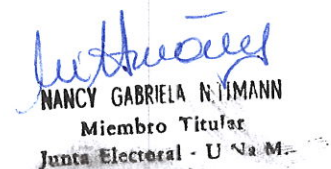 NANCY GABRIELA NITTMANN
Miembro Titular
Junta Electoral - U Na M.-